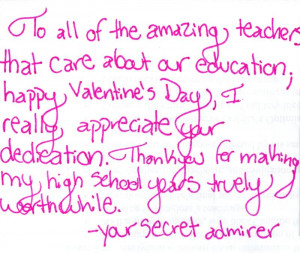 To all of the amazing teachers
that care about our education,
happy Valentine's Day, I
really appreciate your
dedication. Thank you for making
my high school years truely
worthwhile.
-your secret admirer